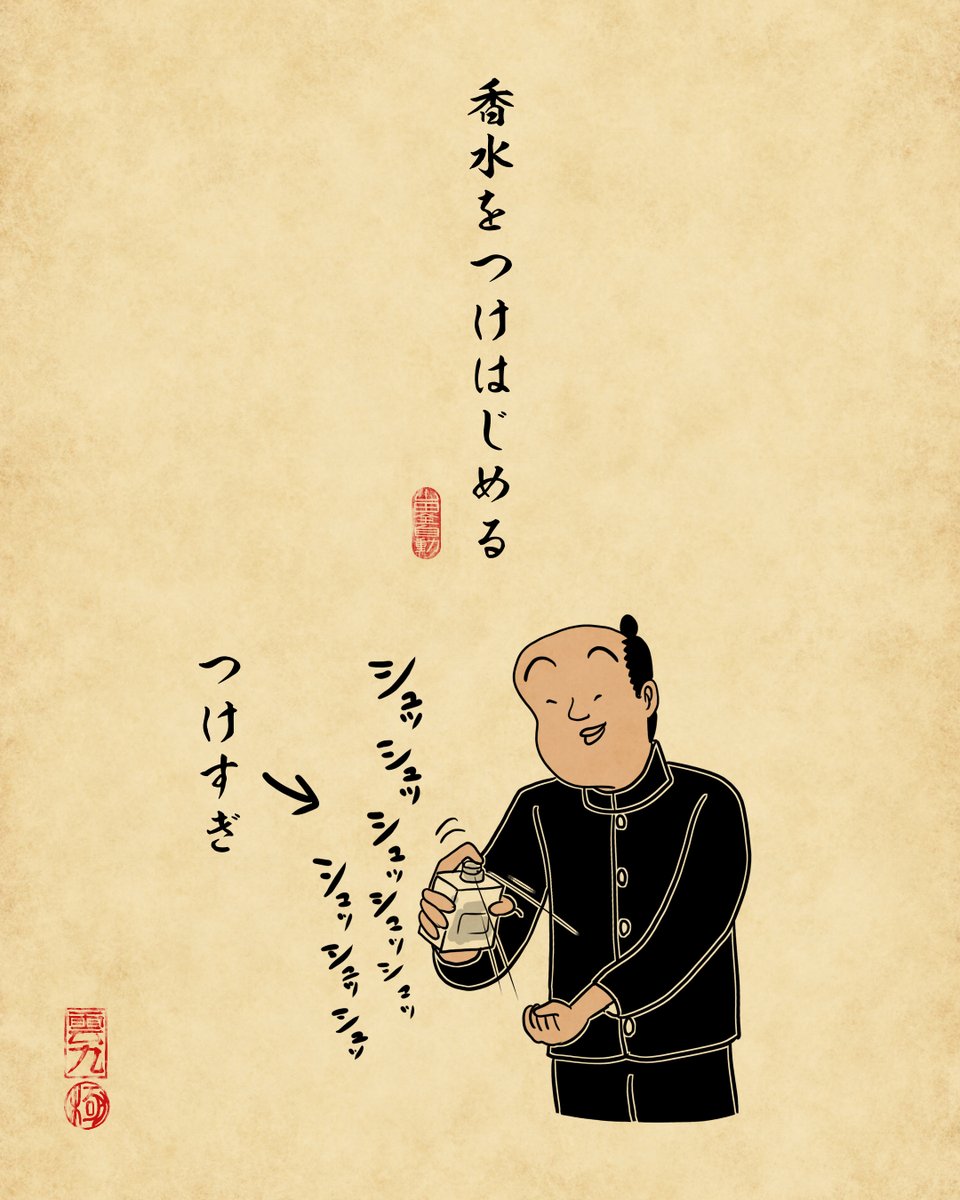 香水をつけはじめる
シュッ
シュッ
シュッ
シュッ
シュッ
シュッ
シュッ
シュッ
つけすぎ